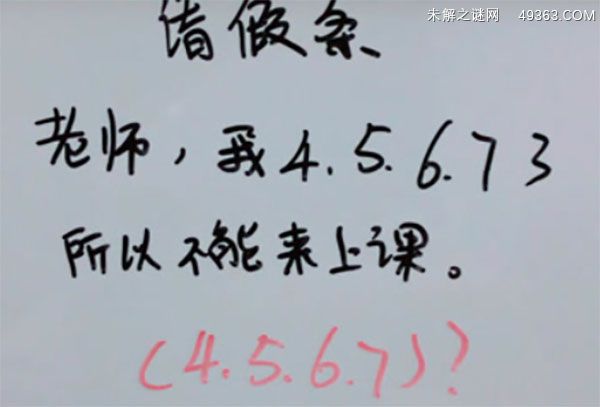 未解之谜网 49363.COM
请假条
老师，我4.5.6.73
所以不能来上课。
(4.5.6.7)?